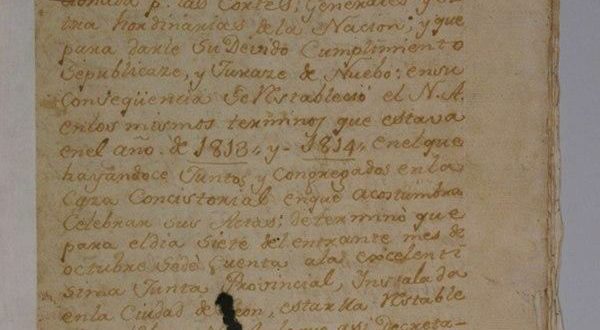 p. las Cortes, Generales y
hordinarias de la Nacion; y que
para darle Su Devido Cumplimento
Sepublicaze, y Juraze de Nuebo: ensu
Conseqüencia Se Restableció el N. A.
enlos mismos terminos que estava
enel año. de 1813,, y- 1814,, enel que
hayandoce Juntos y Congregados enla
Caza Concistorial enque acostumbra
Celebrar sus Actas; determinó que
para eldia siete del entrante mes de
octubre Sede Cuenta ala excelenti
sima Junta Provincial, Instalada
enla Ciudad de Leon, estar ya Restable
que asi Decreta-